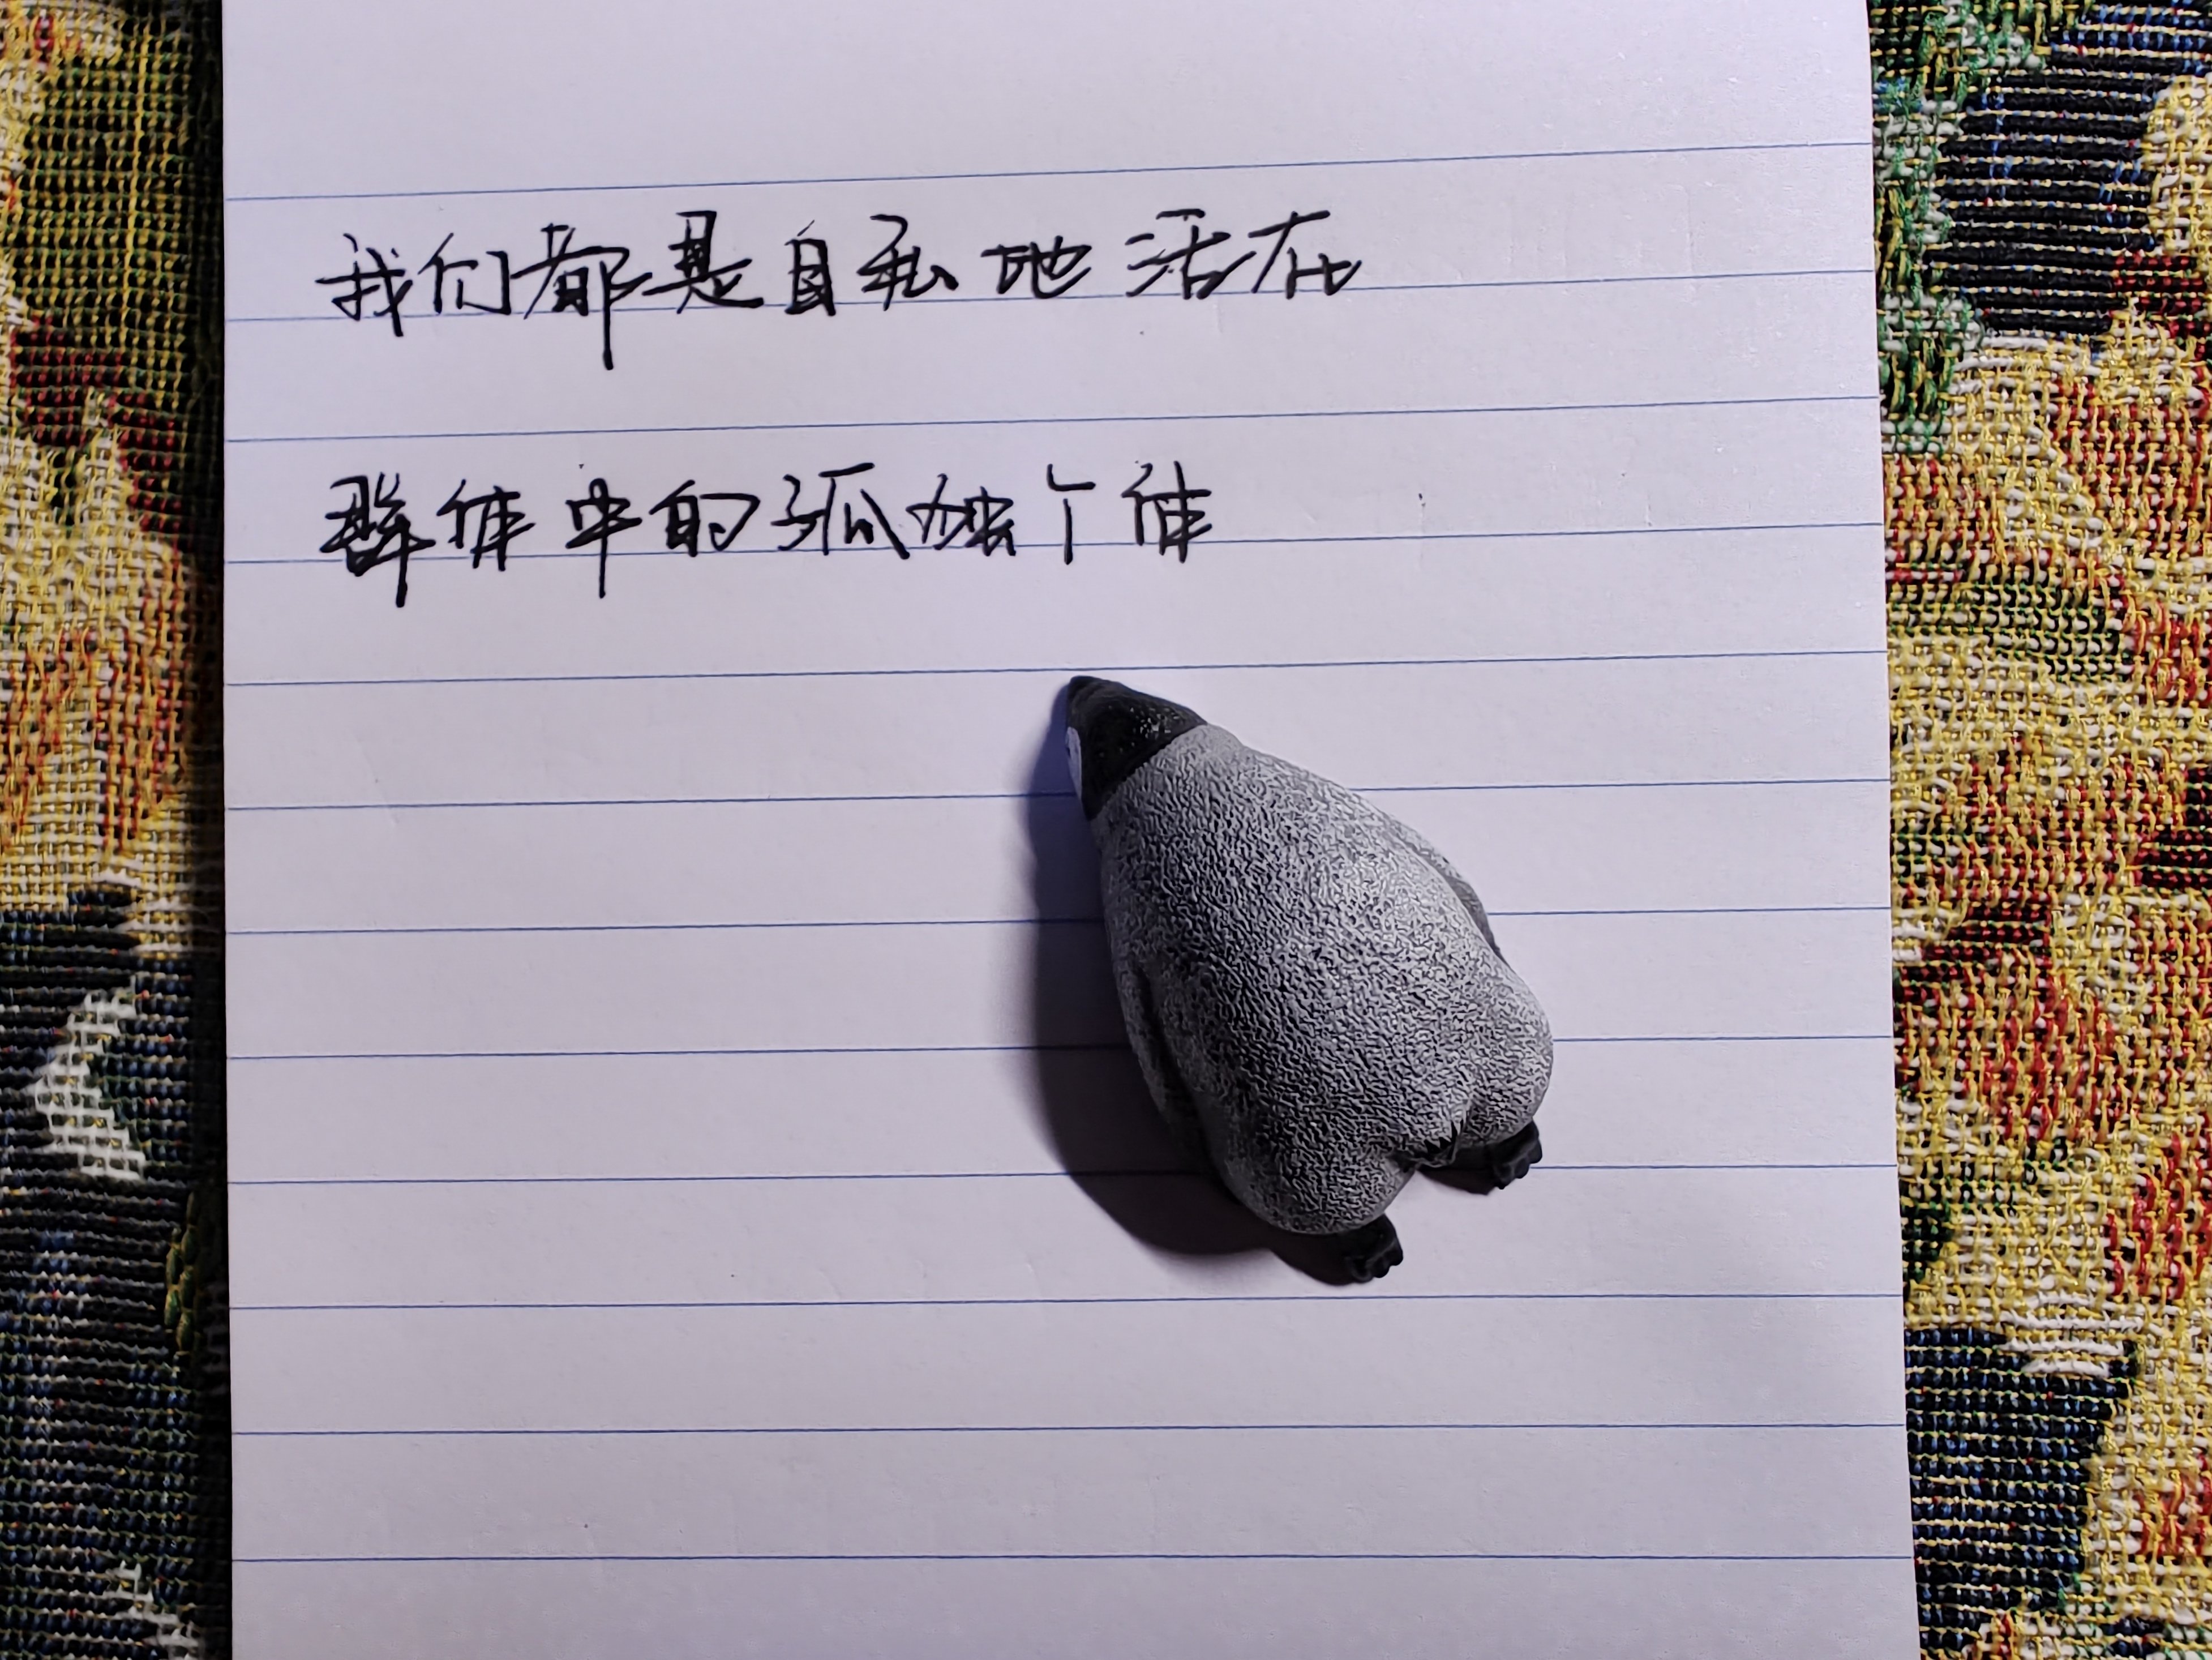 我们都是自私地活在
群体中的孤独个体